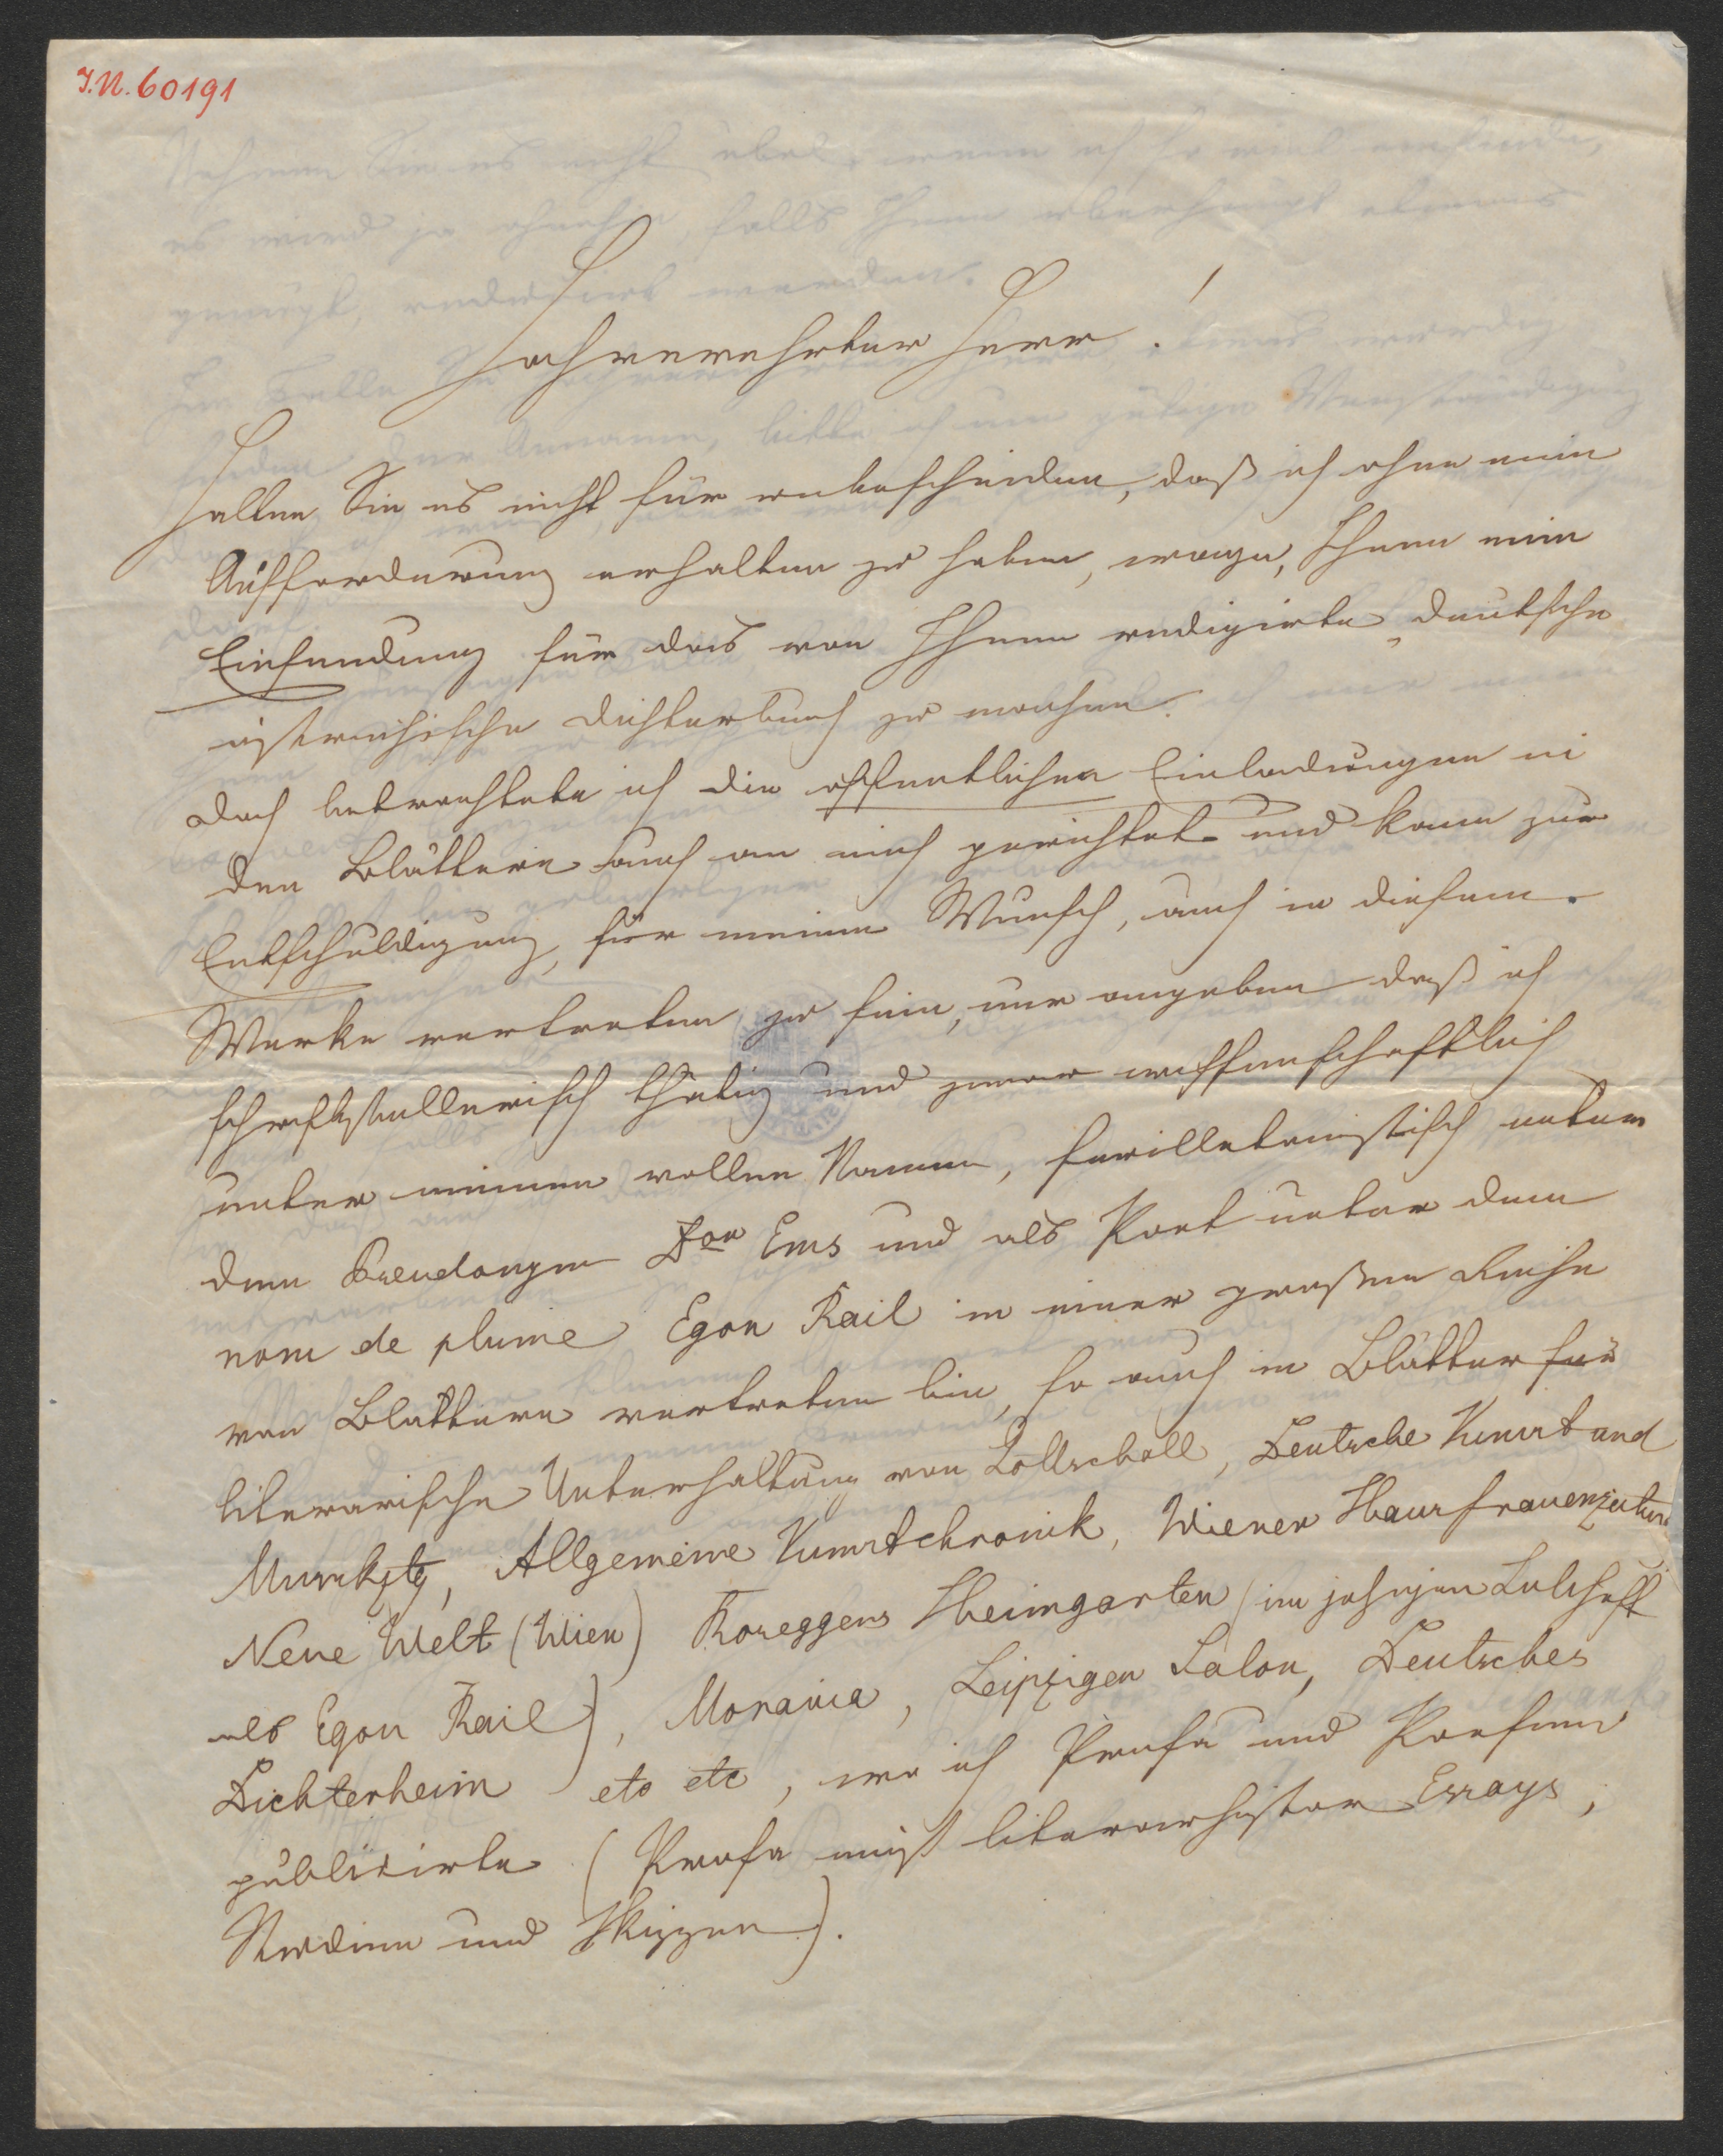 I.N. 60191
Hochverehrter Herr!
Halten Sie es nicht für unbescheiden, daß ich ohne eine
Aufforderung erhalten zu haben, wage, Ihnen eine
Einsendung für das von Ihnen redigirte „deutsche
östreichische Dichterbuch zu machen.
Doch betrachtete ich die öffentlichen Einladungen in
den Blättern auch an mich gerichtet und kann zur
Entschuldigung, für meinen Wunsch, auch in diesem
Werke vertreten zu sein, nur angeben daß ich
schriftstellerisch thätig und zwar wissenschaftlich
unter meinem vollen Namen, feuilletonistisch unter
dem Pseudonym Don Ems und als Poet unter dem
nom de plume Egon Rail in einer großen Reihe
von Blättern vertreten bin, so auch in Blätter für
literarische Unterhaltung von Gottschall, Deutsche Kunst und
Musikztg, Allgemeine Kunstchronik, Wiener Hausfrauenzeitung
Neue Welt (Wien) Roseggers Heimgarten (im Julihefte
als Egon Rail), Moravia, Leipziger Salon, Deutsches
Dichterheim etc etc, wo ich Prosa und Poesien
publicirte (Prosa meist literarhistor Essays,
Studien und Skizzen).